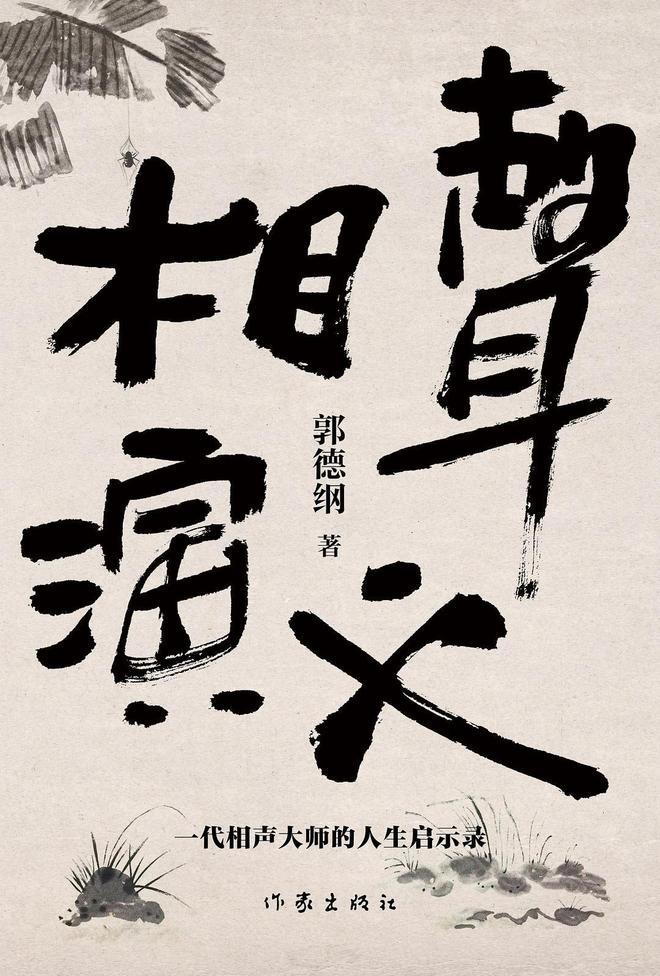 相聲
演义
郭德纲 著
一代相声大师的人生启示录
作家出版社